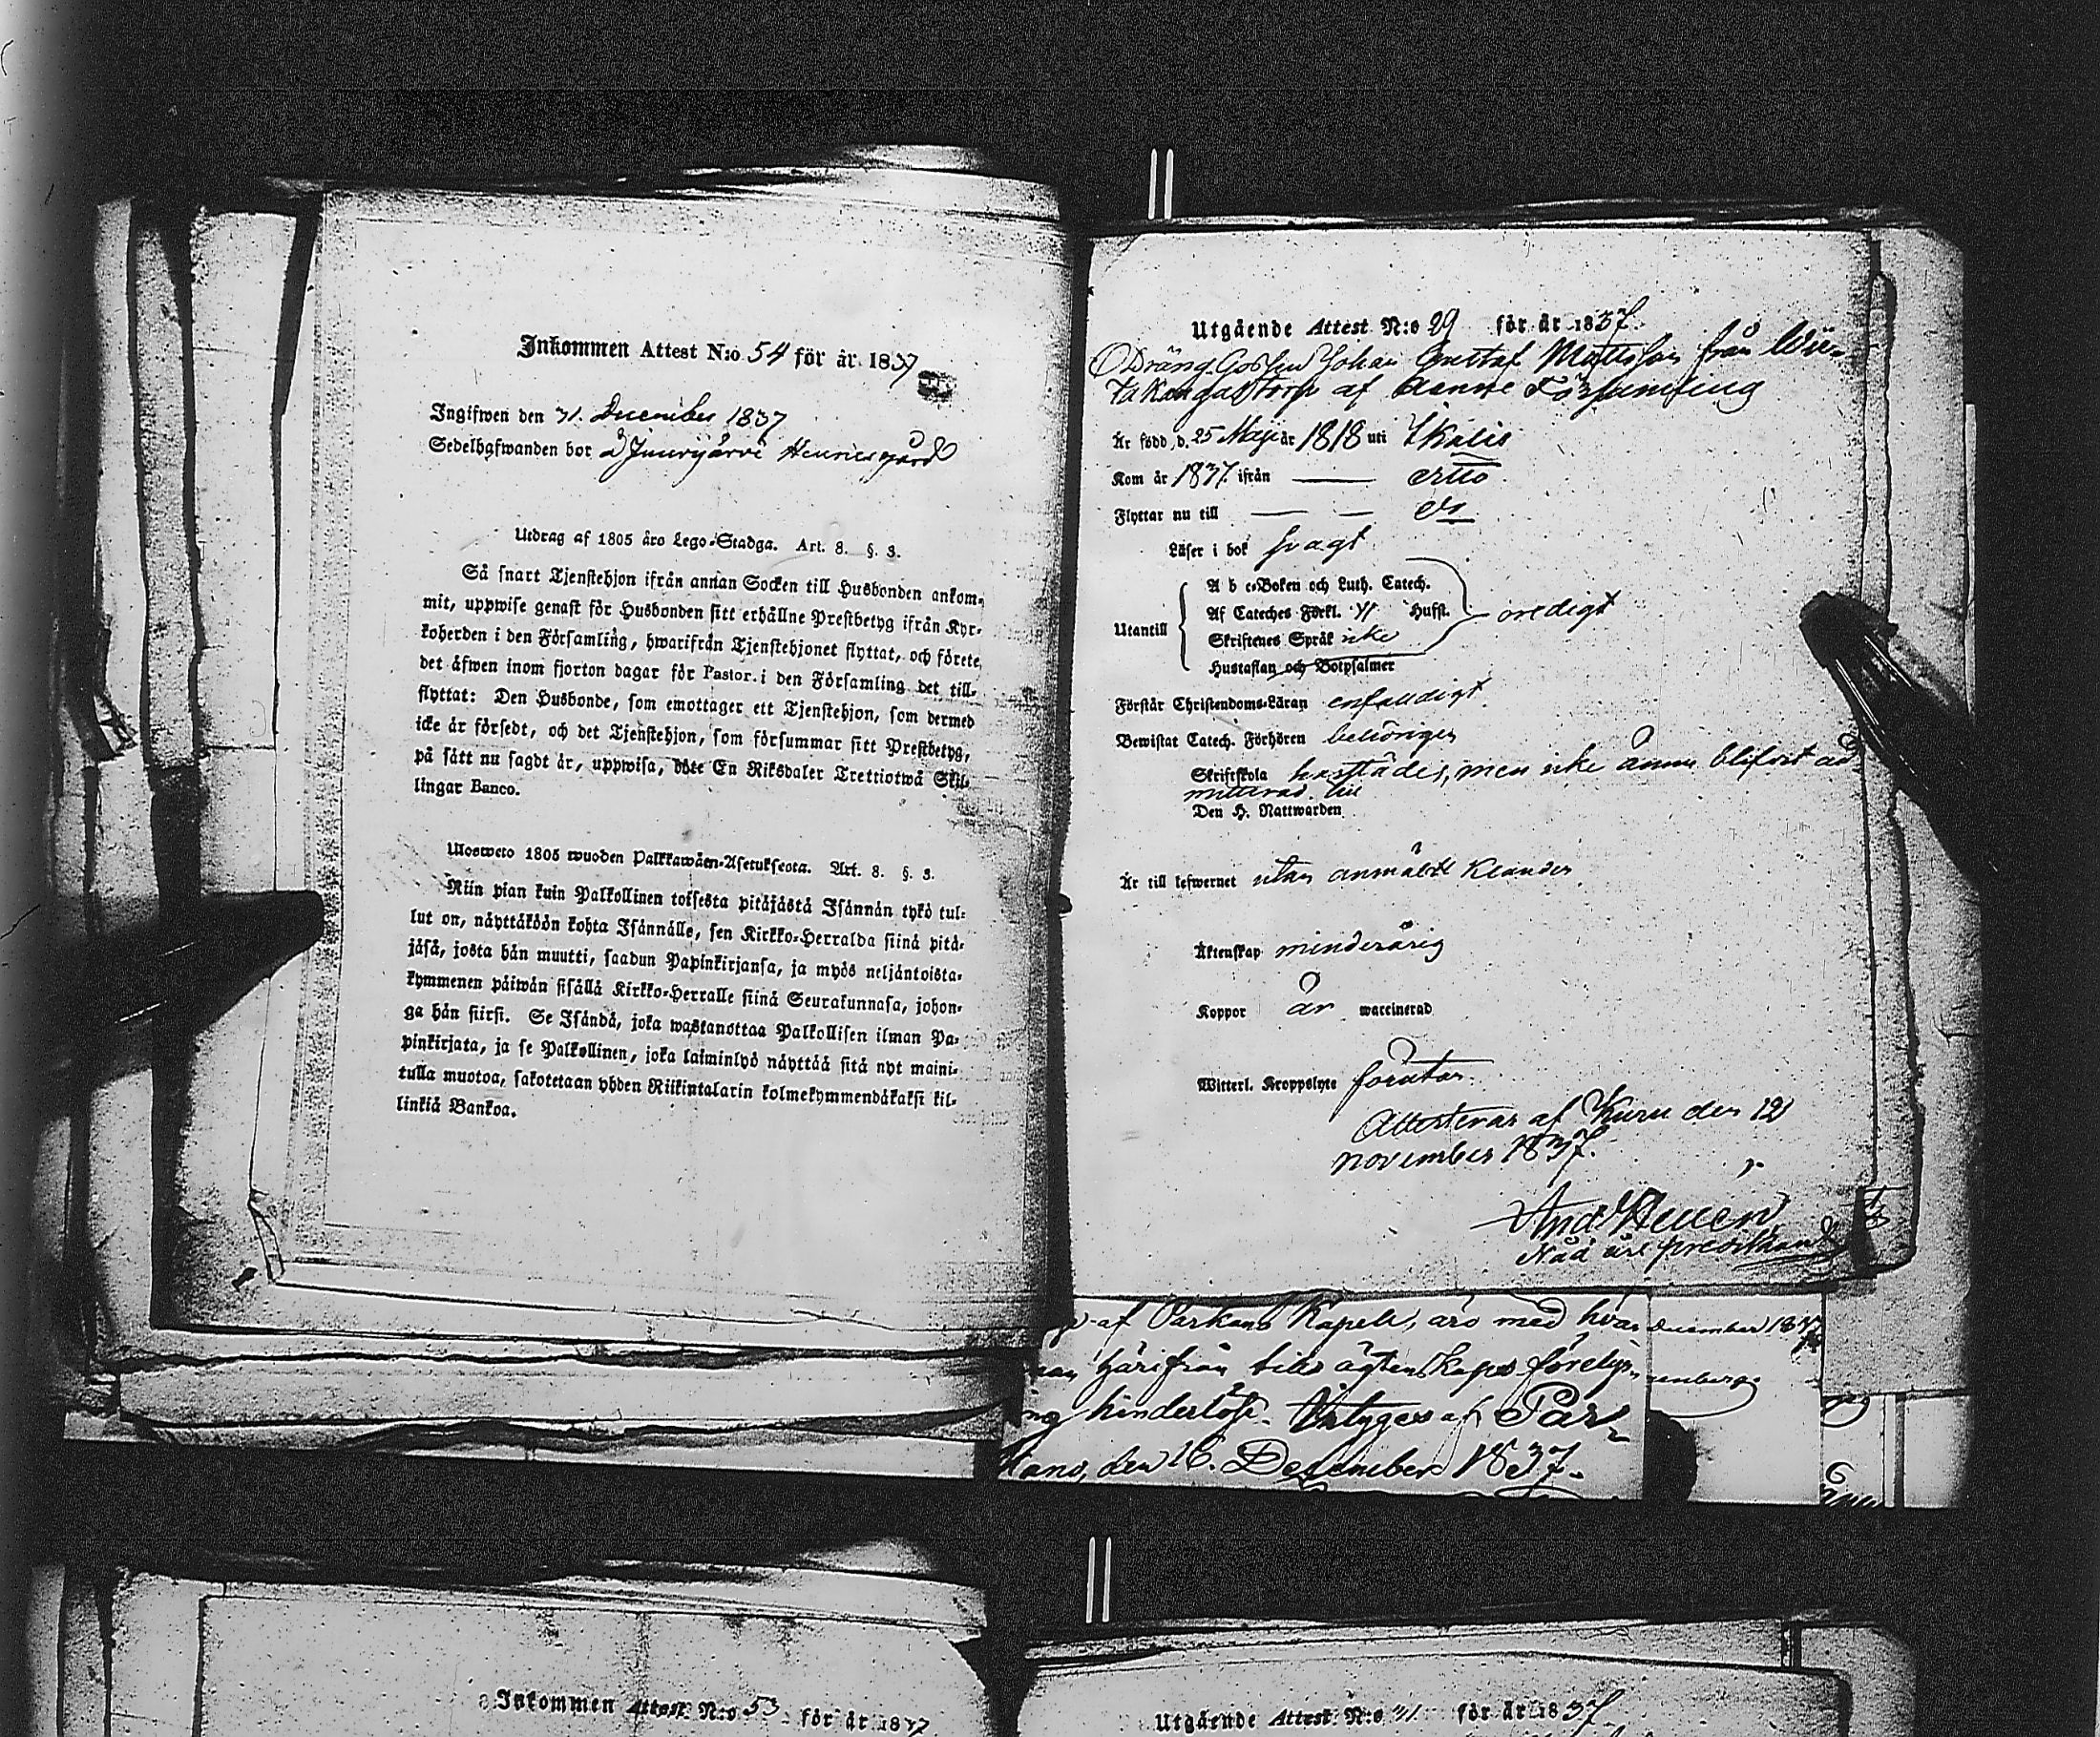 Inkommen Attest N:o 54 för år 1837
Ingifwen den 31 December 1837
Sedelhafwanden bor å Jumijärvi Henricsgård
Utdrag af 1805 års Lego-Stadga. Art. 8. §. 3.
Så snart Tjenstehjon ifrån annan Socken till Husbonden ankom-
mit, uppwise genast för Husbonden sitt erhållne Prestbetyg ifrån Kyr-
koherden i den Församling, hwarifrån Tjenstehjonet flyttat, och förete
det äfwen inom fjorton dagar för Pastor i den Församling det till-
flyttat: Den Husbonde, som emottager ett Tjenstehjon, som dermed
icke är försedt, och det Tjenstehjon, som försummar sitt Prestbetyg,
på sätt nu sagdt är, uppwisa, böte En Riksdaler Trettiotwå Skil-
lingar Banco.
Ulosweto 1805 wuoden Palkkawäen-Asetuksesta. Art. 8. §. 3.
Niin pian kuin Palkollinen toisesta pitäjästä Isännän tykö tul-
lut on, näyttäköön kohta Isännälle, sen Kirkko-Herralda siinä pitä-
jäsä, josta hän muutti, saadun Papinkirjansa, ja myös neljäntoista-
kymmenen päiwän sisällä Kirkko-Herralle siinä Seurakunnasa, johon-
ga hän siirsi. Se Isändä, joka wastanottaa Palkollisen ilman Pa-
pinkirjata, ja se Palkollinen, joka laiminlyö näyttää sitä nyt maini-
tulla muotoa, sakotetaan yhden Riikintalarin kolmekymmendäkaksi kil-
linkiä Bankoa.
Utgående Attest N:o 29 för år 1837.
Dräng Gossen Johan Gustaf Mattsson från
takangas Torp af denne Församling
Är född, d. 25 Maji år 1818 uti Ikalis
Kom år 1837 ifrån — ditto
Flyttar nu till — — do
Läser i bok svagt
A b c-Boken och Luth. Catech.
Af Cateches Förkl. VI Hufst.
Utantill
oredigt
Skriftenes Språk icke
Hustaflan och Botpsalmer
Förstår Christendoms-Läran enfaldigt
Bewistat Catech. Förhören behörigen
Skriftskola härstädes, men icke ännu blifvit ad-
mitterad till
Den H. Nattwarden
Är till lefwernet utan anmäldt klander
Äktenskap minderårig
Koppor är waccinerad
Witterl. Kroppslyte förutan.
Attesteras af Kuru den 12
november 1837.
Nåd års predikant
af Parkano Kapell, äro med hvar
härifrån till ägtenskaps förelys-
ng hinderlöse. Intygas af Par-
kano, den 16. December 1837.
December 1837
Inkommen Attest N:o 53 för år 1837
Utgående Attest N:o 31 för år 1837